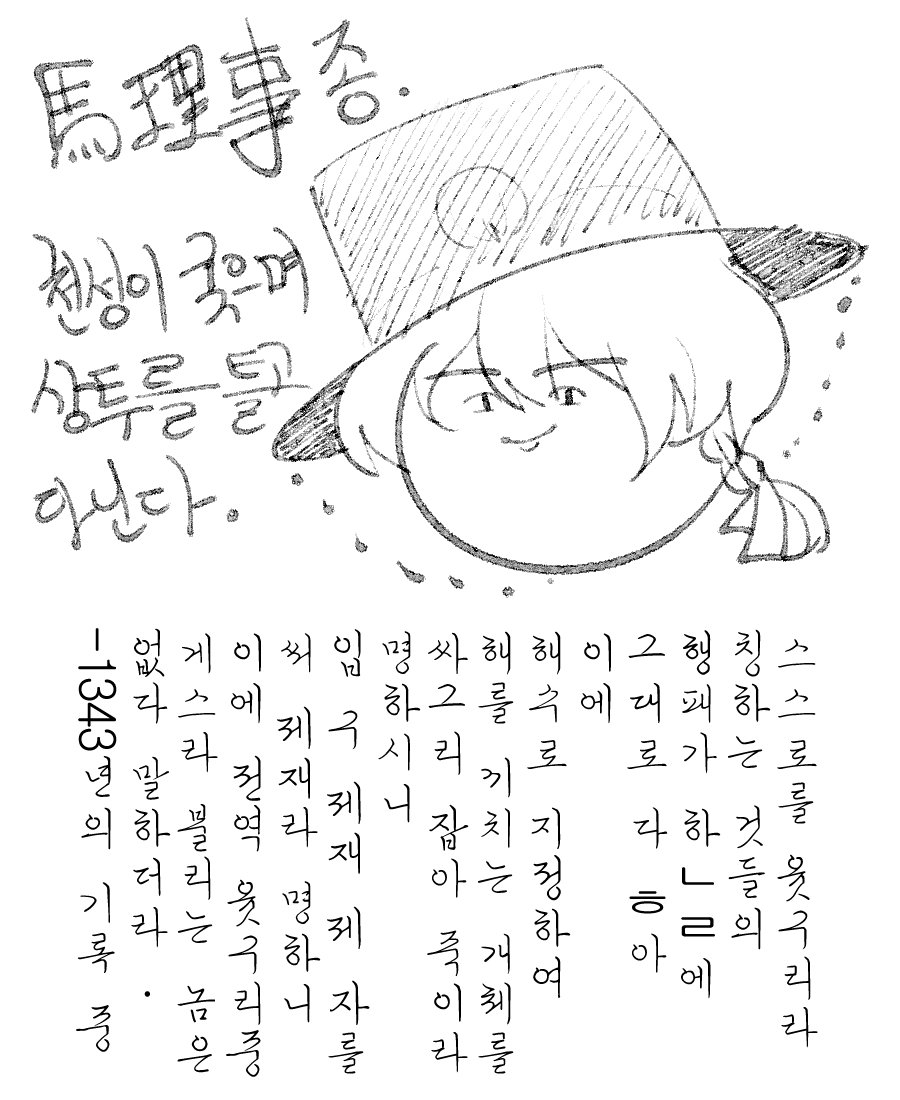 馬理事 종.
천성이 궂으며
상투를 틀고
다닌다.
스스로를 윳구리라
칭하는 것들의
행패가 하ㄴㄹ에
그대로 다ㅎ아
이에
해수로 지정하여
해를 끼치는 개체를
싸그리 잡아 죽이라
명하시니
임 구 제재 제 자를
써 제재라 명하니
이에 전역 윳구리중
게스라 불리는 놈은
없다 말하더라.
-1343년의 기록 중